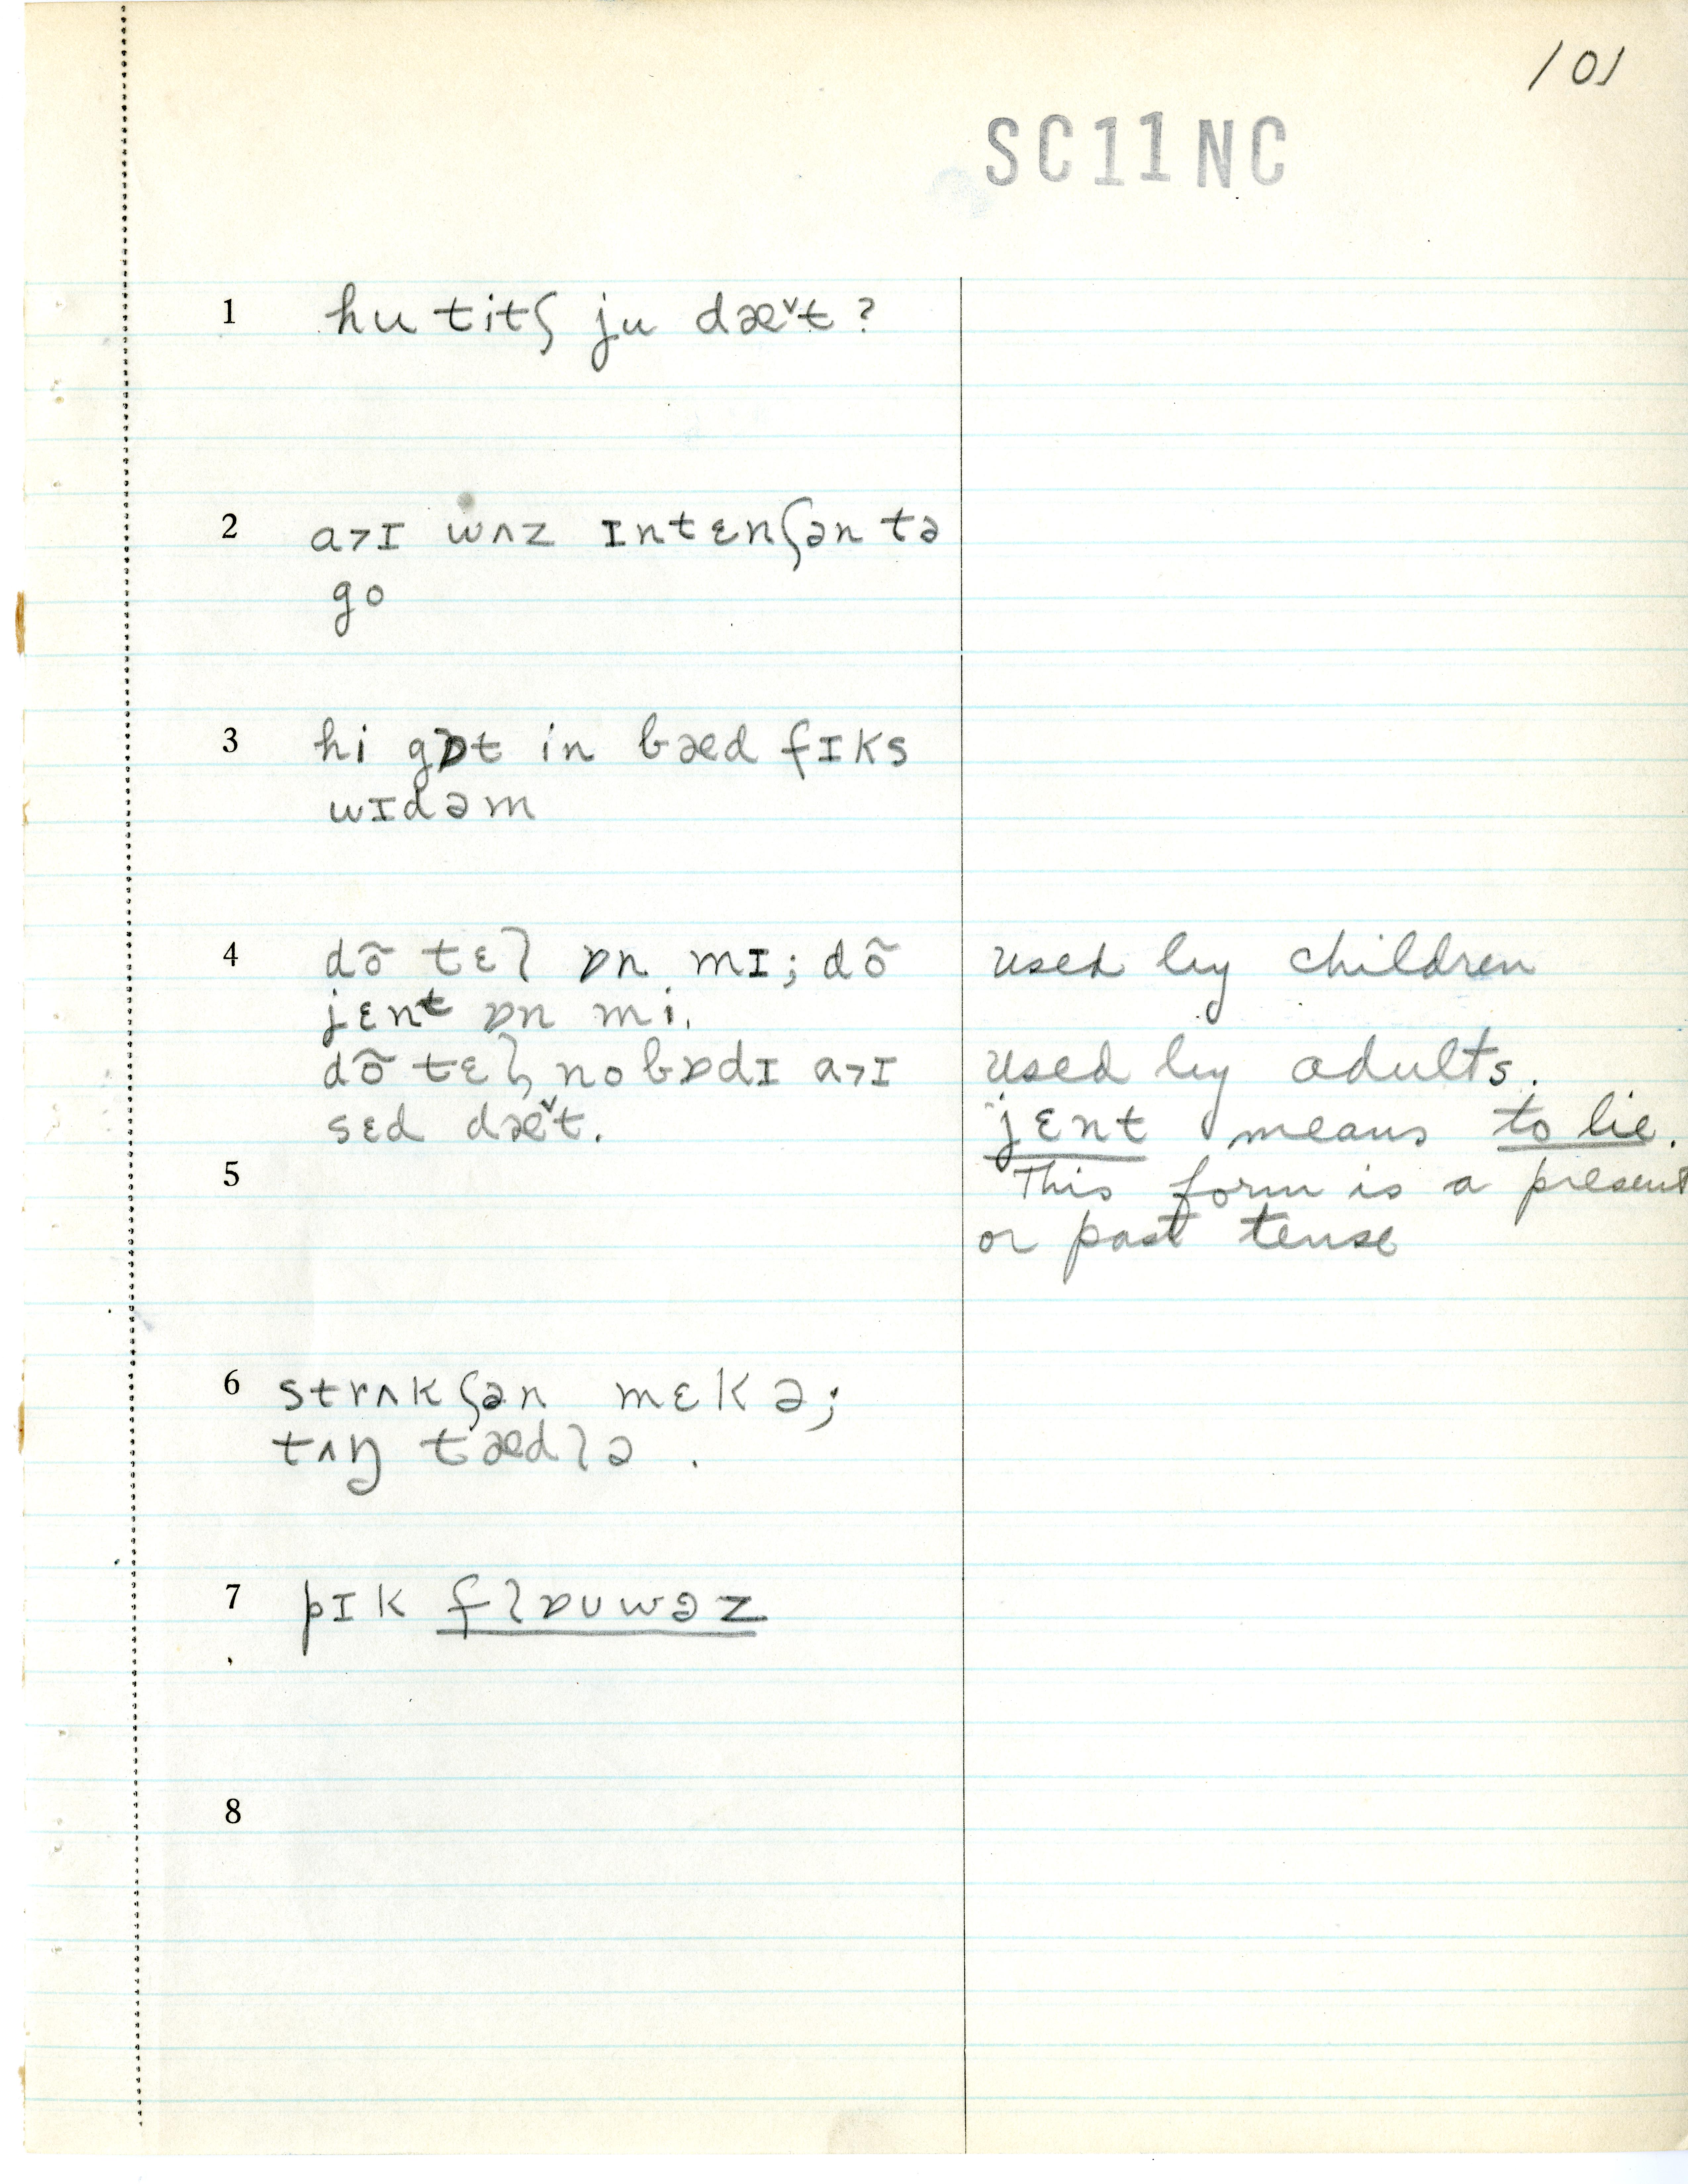 101
SC11NC
1 hu titʃ ju dæ˅t ?
2 a˃ɪ wʌz ɪntɛnʃən tə
go
3 hi gɒt in bæd fɪks
wɪdəm
4 dõ tɛl ɒn mɪ; dõ used by children
jɛnt ɒn mi.
dõ tɛl nobɒdɪ a˃ɪ used by adults.
sɛd dæ˅t. jɛnt means to lie.
5 This form is a present
or past tense
6 strʌkʃən mɛkə;
tʌŋ tædlə .
7 pɪk flɒuwəz
8